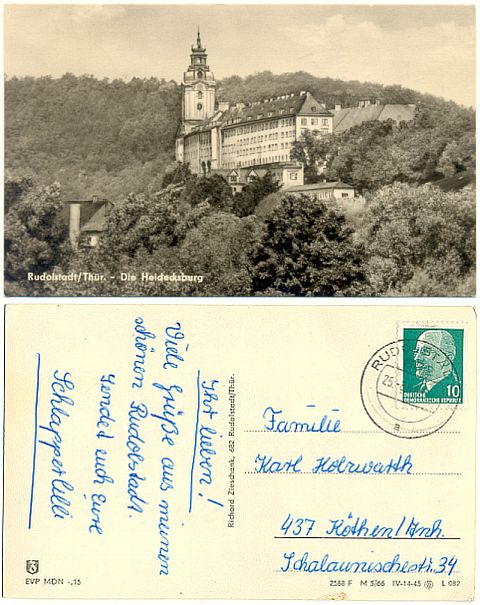 Rudolstadt/Thür. - Die Heidecksburg
Ihr lieben!
Viele Grüße aus meinen
schönen Rudolstadt.
sendet euch Eure
Schlapperlilli
Richard Zieschank, 682 Rudolstadt/Thür.
RUDOLST
DEUTSCHE
DEMOKRATISCHE REPUBLIK
10
a
Familie
Karl Holzwarth
437 Köthen/Anh.
Schalaunischestr. 34
EVP MDN -,15
2588 F M 5/66 IV-14-45 L 082